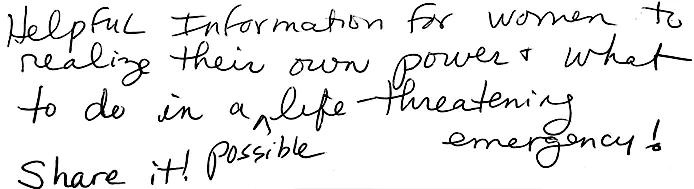 Helpful Information for women to
realize their own power & what
to do in a possible life-threatening
emergency!
Share it!